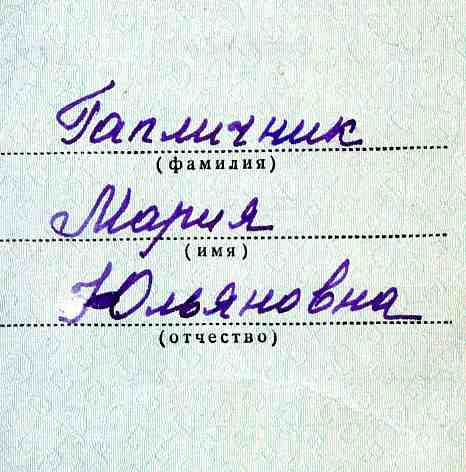 Гапличник
(фамилия)
Мария
(имя)
Юльяновна
(отчество)